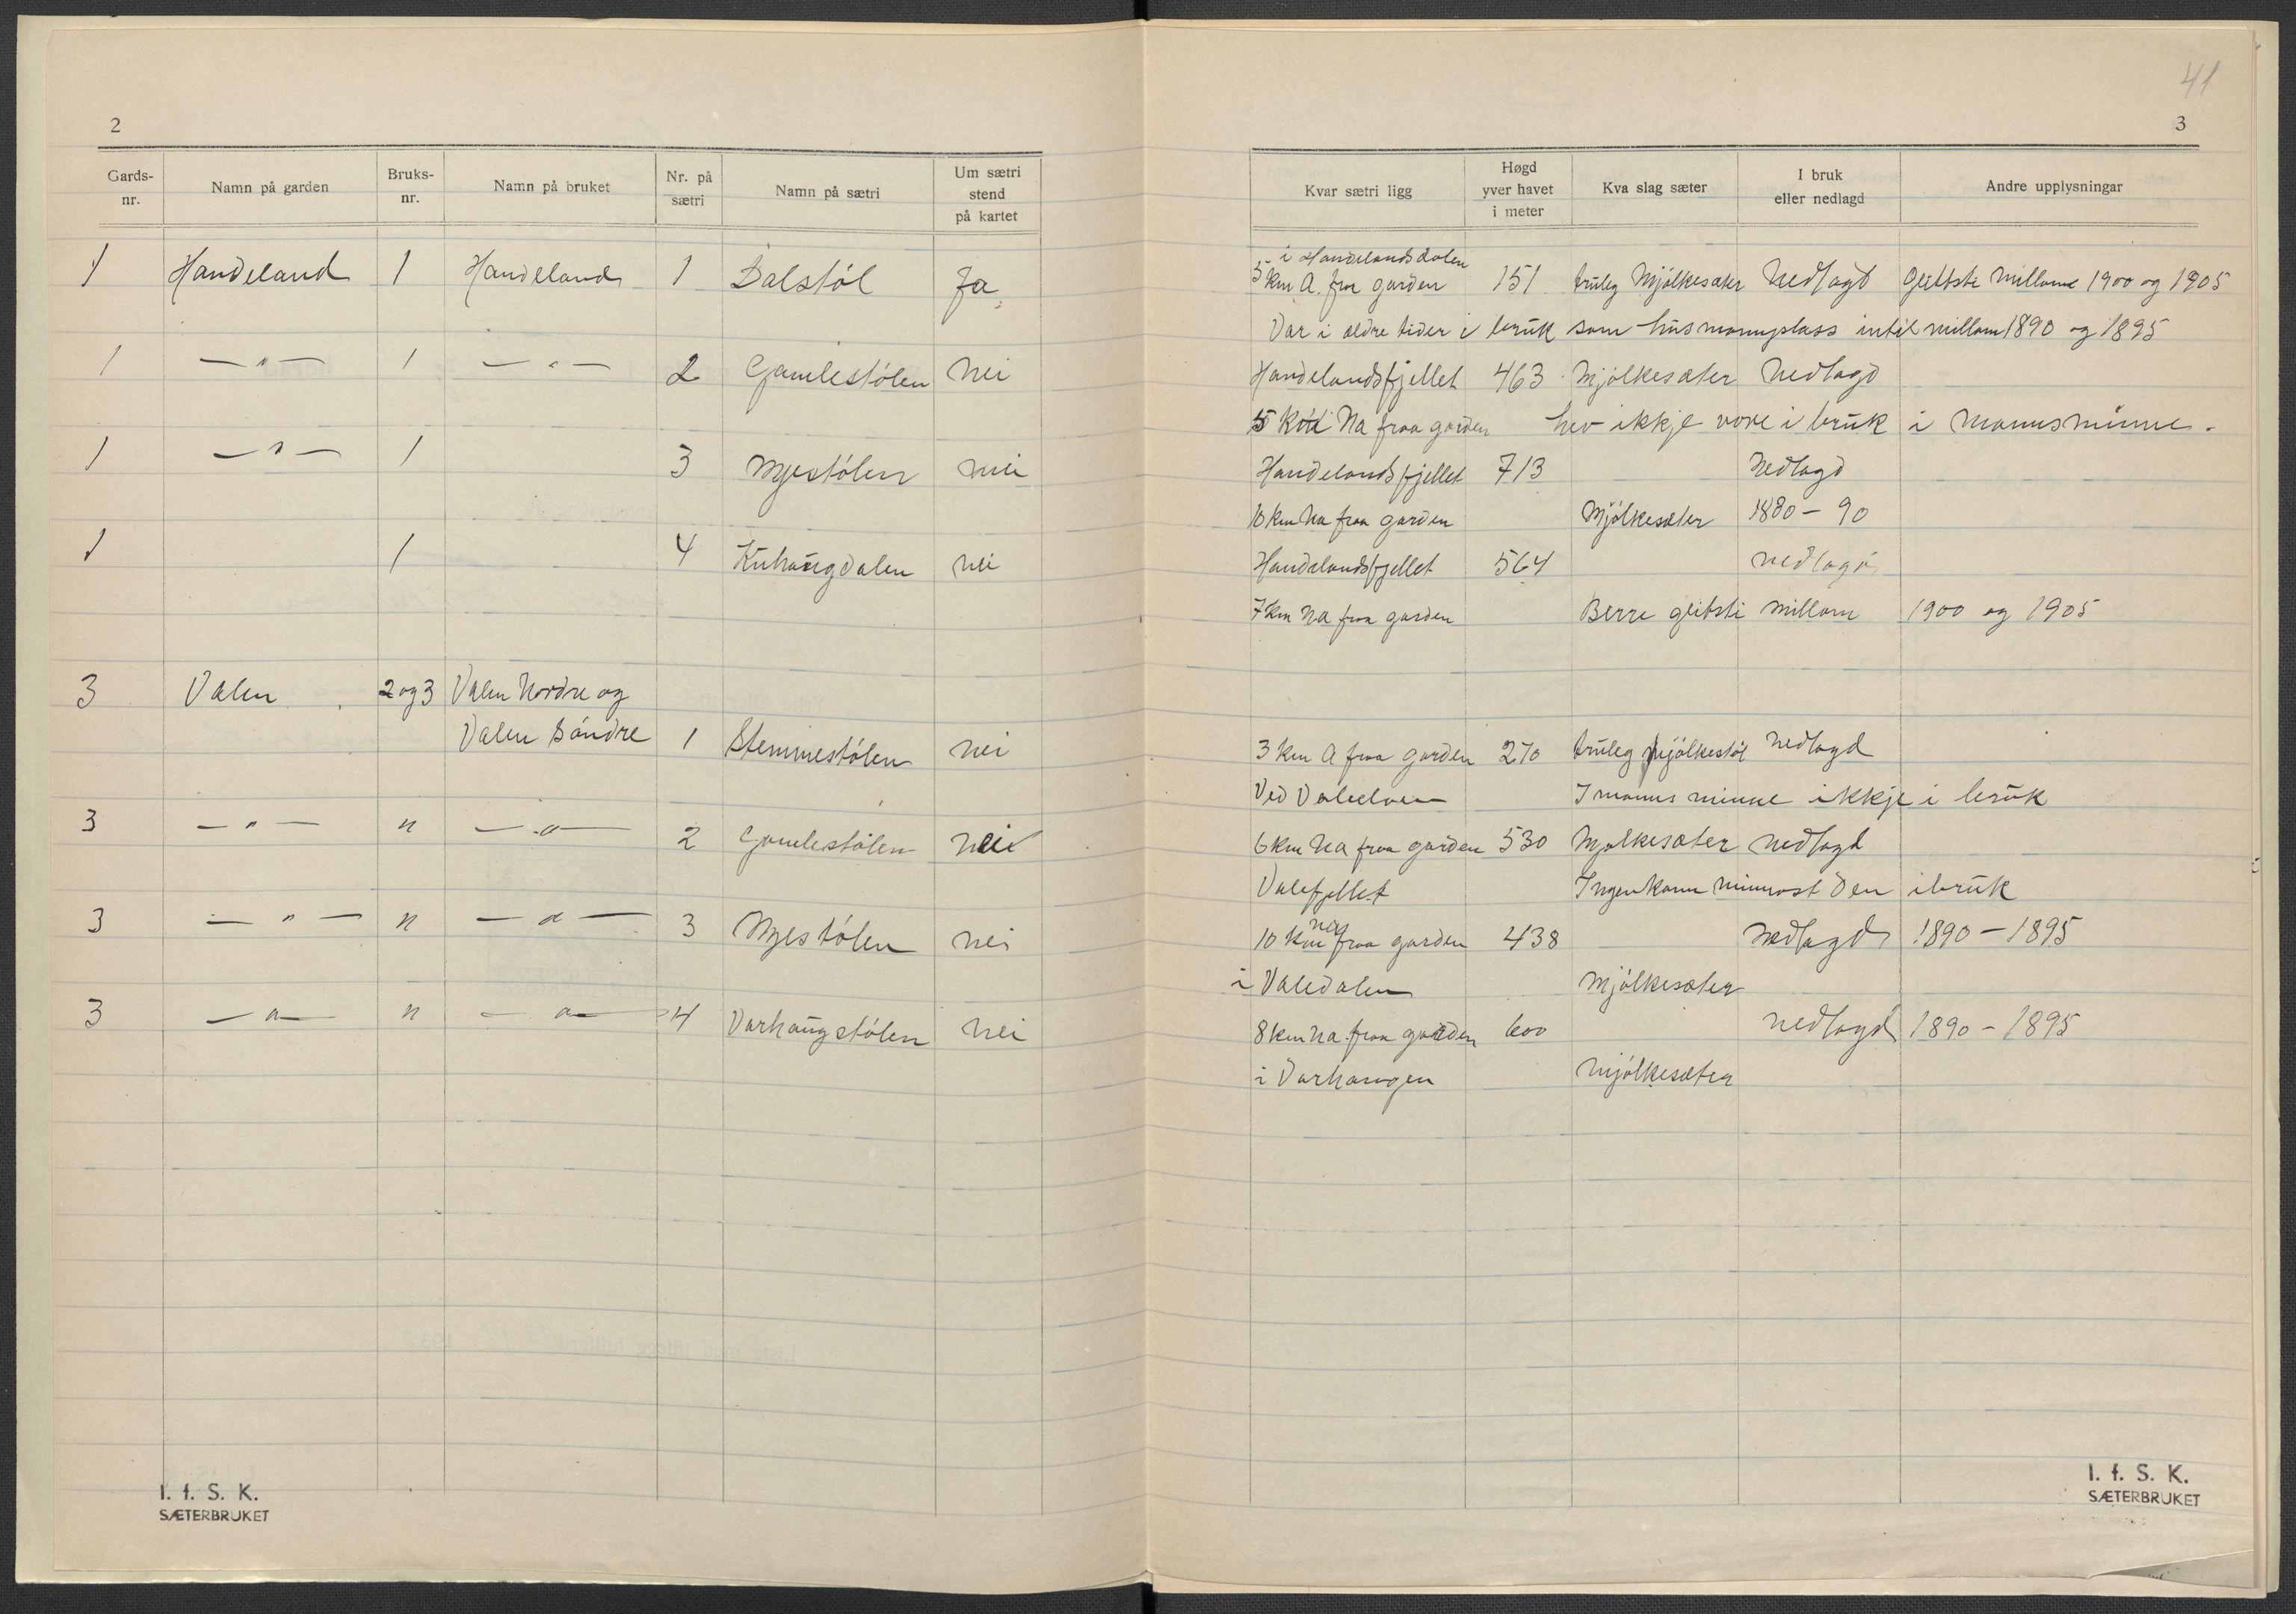 41
2
3
Gards-nr. Namn på garden Bruks-nr. Namn på bruket Nr. på sætri Namn på sætri Um sætri stend på kartet
Kvar sætri ligg Høgd yver havet i meter Kva slag sæter I bruk eller nedlagd Andre upplysningar
i Handelandsdalen
1 Handeland 1 Handeland 1 Dalstøl Ja 5 km A. fra garden 151 truleg Mjølkesæter Nedlagd millom 1900 og 1905
Var i ældre tider i bruk som husmannsplass intil millom 1890 og 1895
1 —"— 1 —"— 2 Gamlestølen Nei Handelandsfjellet 463 Mjølkesæter Nedlagd
5 km Na fraa garden hev ikkje vore i bruk i Mannsminne.
1 —"— 1 3 Myestølen nei Handelandsfjellet 713 Nedlagd
10 km Na fraa garden Mjølkesæter 1880 - 90
1 1 4 Kuhaugdalen nei Handelandsfjellet 564 nedlagd
7 km Na fraa garden Berre millom 1900 og 1905
3 Valen 2 og 3 Valen Nordre og
Valen Søndre 1 Stemmestølen nei 3 km A fraa garden 270 truleg mjølkestøl Nedlagd
Ved I manns minne ikkje i bruk
3 —"— " —"— 2 Gamlestølen Nei 6 km Na fraa garden 530 Mjølkesæter nedlagd
Valefjellet Ingen kann minnast den i bruk
3 —"— " —"— 3 Myestølen nei 10 km Na fraa garden 438 Nedlagd 1890 - 1895
i Valedalen Mjølkesæter
3 —"— " —"— 4 Varhaugstølen nei 8 km Na fraa garden 600 nedlagd 1890 - 1895
i Varhaugen Mjølkesæter
I. f. S. K.
SÆTERBRUKET
I. f. S. K.
SÆTERBRUKET